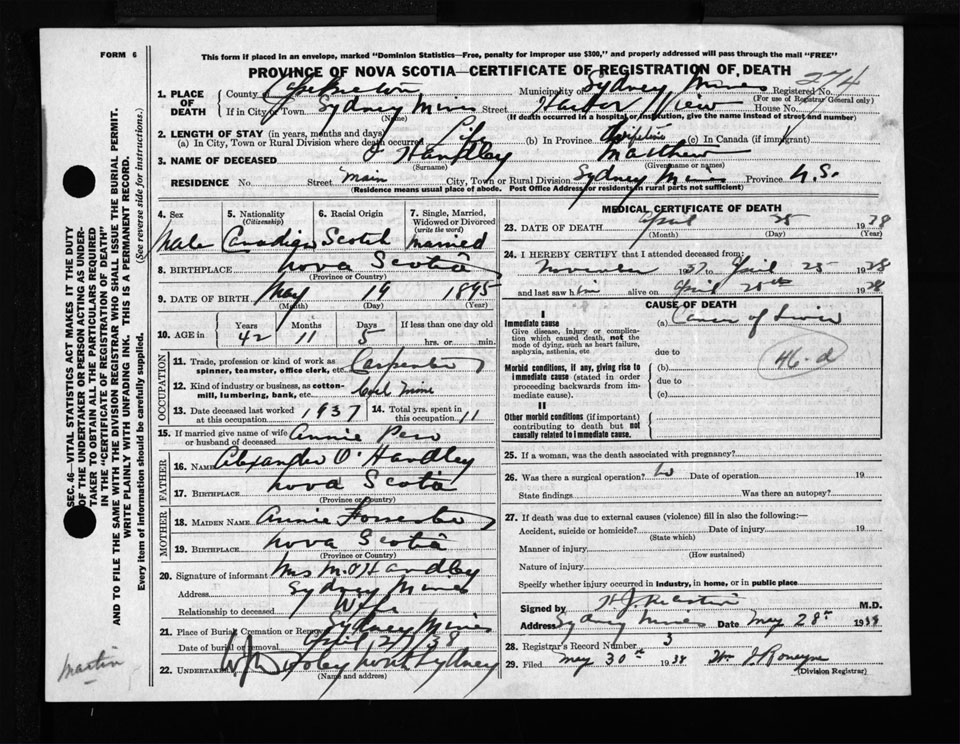 FORM 6
This form if placed in an envelope, marked "Dominion Statistics—Free, penalty for improper use $300," and properly addressed will pass through the mail "FREE"
PROVINCE OF NOVA SCOTIA—CERTIFICATE OF REGISTRATION OF DEATH
274
1. PLACE OF DEATH County Cape Breton Municipality of Sydney Mines Registered No.
(For use of Registrar General only)
If in City or Town Sydney Mines Street Harbor View House No.
(Name) (If death occurred in a hospital or institution, give the name instead of street and number)
2. LENGTH OF STAY (in years, months and days)
(a) In City, Town or Rural Division where death occurred Life (b) In Province Lifetime (c) In Canada (if immigrant)
3. NAME OF DECEASED O'Handley Matthew
(Surname) (Given name or names)
RESIDENCE No. Street Main City, Town or Rural Division Sydney Mines Province N.S.
(Residence means usual place of abode. Post Office Address for residents in rural parts not sufficient)
4. Sex Male
5. Nationality (Citizenship) Canadian
6. Racial Origin Scotch
7. Single, Married, Widowed or Divorced (write the word) Married
8. BIRTHPLACE Nova Scotia
(Province or Country)
9. DATE OF BIRTH May 19 1895
(Month) (Day) (Year)
10. AGE in Years 42 Months 11 Days 5 If less than one day old hrs. or min.
OCCUPATION
11. Trade, profession or kind of work as spinner, teamster, office clerk, etc. Carpenter
12. Kind of industry or business, as cotton-mill, lumbering, bank, etc. Coal Mine
13. Date deceased last worked at this occupation 1937 14. Total yrs. spent in this occupation 11
15. If married give name of wife or husband of deceased Annie
FATHER
16. NAME Alexander O'Handley
17. BIRTHPLACE Nova Scotia
(Province or Country)
MOTHER
18. MAIDEN NAME Annie Forrester
19. BIRTHPLACE Nova Scotia
(Province or Country)
20. Signature of informant Mrs M. O'Handley
Address Sydney Mines
Relationship to deceased Wife
21. Place of Burial Cremation or Removal Sydney Mines
Date of burial or removal April 38
22. Undertaker Foley North Sydney
(Name and address)
MEDICAL CERTIFICATE OF DEATH
23. DATE OF DEATH April 25 1938
(Month) (Day) (Year)
24. I HEREBY CERTIFY that I attended deceased from:
November 1937 to April 25 1938
and last saw him alive on April 25th 1938
CAUSE OF DEATH
I
Immediate cause (a) Cancer of Liver
Give disease, injury or complication which caused death, not the mode of dying, such as heart failure, asphyxia, asthenia, etc
due to
46-d
Morbid conditions, if any, giving rise to immediate cause (stated in order proceeding backwards from immediate cause).
(b)
due to
(c)
II
Other morbid conditions (if important) contributing to death but not causally related to immediate cause.
25. If a woman, was the death associated with pregnancy?
26. Was there a surgical operation? No Date of operation 19
State findings Was there an autopsy?
27. If death was due to external causes (violence) fill in also the following:—
Accident, suicide or homicide? Date of injury 19
(State which)
Manner of injury
(How sustained)
Nature of injury
Specify whether injury occurred in industry, in home, or in public place
Signed by M.D.
Address Sydney Mines Date May 28th 1938
28. Registrar's Record Number 3
29. Filed May 30th 1938
(Division Registrar)
SEC. 46—VITAL STATISTICS ACT MAKES IT THE DUTY
OF THE UNDERTAKER OR PERSON ACTING AS UNDER-
TAKER TO OBTAIN ALL THE PARTICULARS REQUIRED
IN THE "CERTIFICATE OF REGISTRATION OF DEATH"
AND TO FILE THE SAME WITH THE DIVISION REGISTRAR WHO SHALL ISSUE THE BURIAL PERMIT.
WRITE PLAINLY WITH UNFADING INK. THIS IS A PERMANENT RECORD.
Every item of information should be carefully supplied. (See reverse side for instructions.)
Martin